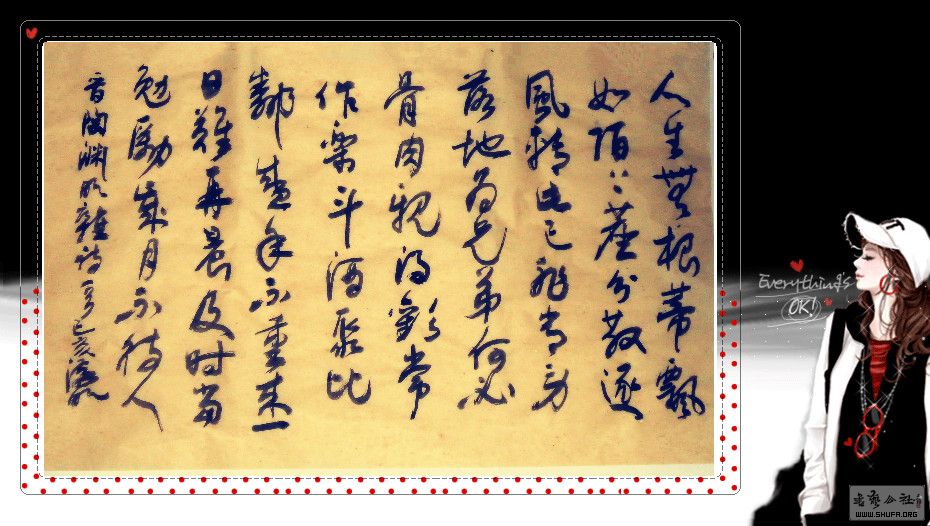 人生無根蒂飄
如陌上塵分散逐
風轉此已非常身
落地為兄弟何必
骨肉親得歡當
作樂斗酒聚比
鄰盛年不重來一
日難再晨及時當
勉勵歲月不待人
晋陶渊明雜詩 己亥
Everything's
OK!
书藝公社
WWW.SHUFA.ORG